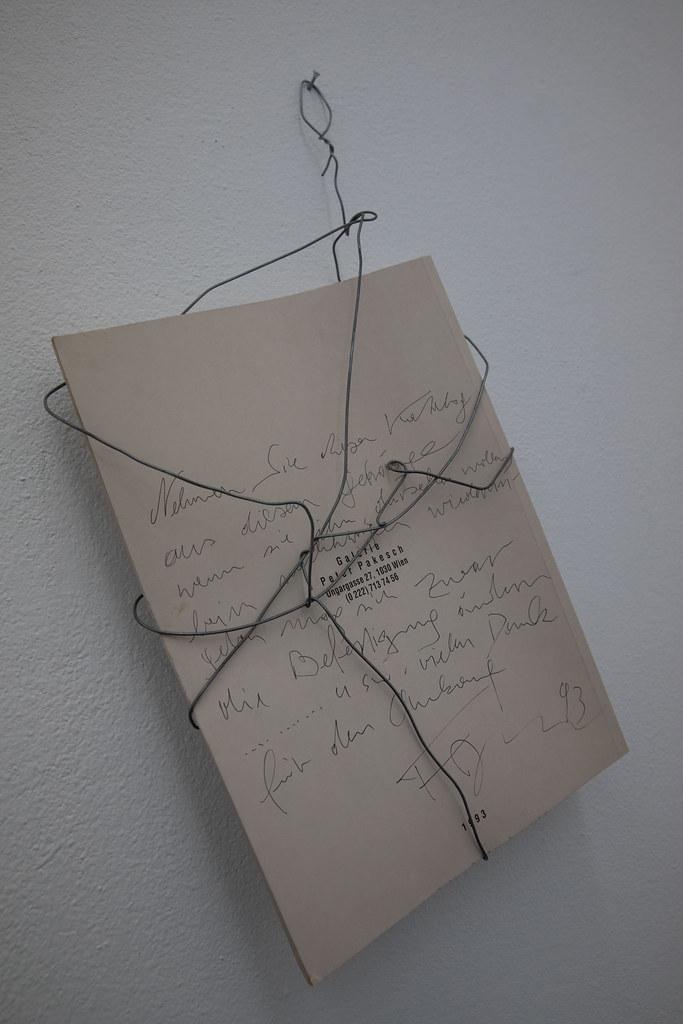 Nehmen Sie diesen Katalog
aus diesem Gehänge
wenn sie ihn durchsehen wollen
Galerie
Peter Pakesch
Ungargasse 27, 1030 Wien
(0 222) 713 74 56
sich zwar
die Befestigung ändern
......... u sie vielen Dank
für den Ankauf
93
1993